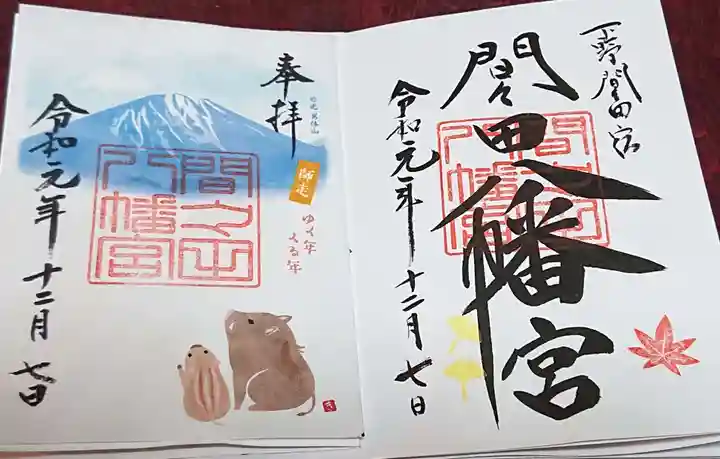 下野間々田宿
間々田八幡宮
間々田八幡宮
令和元年十二月七日
奉拝
日光男体山
師走
ゆく年
くる年
間々田八幡宮
令和元年十二月七日